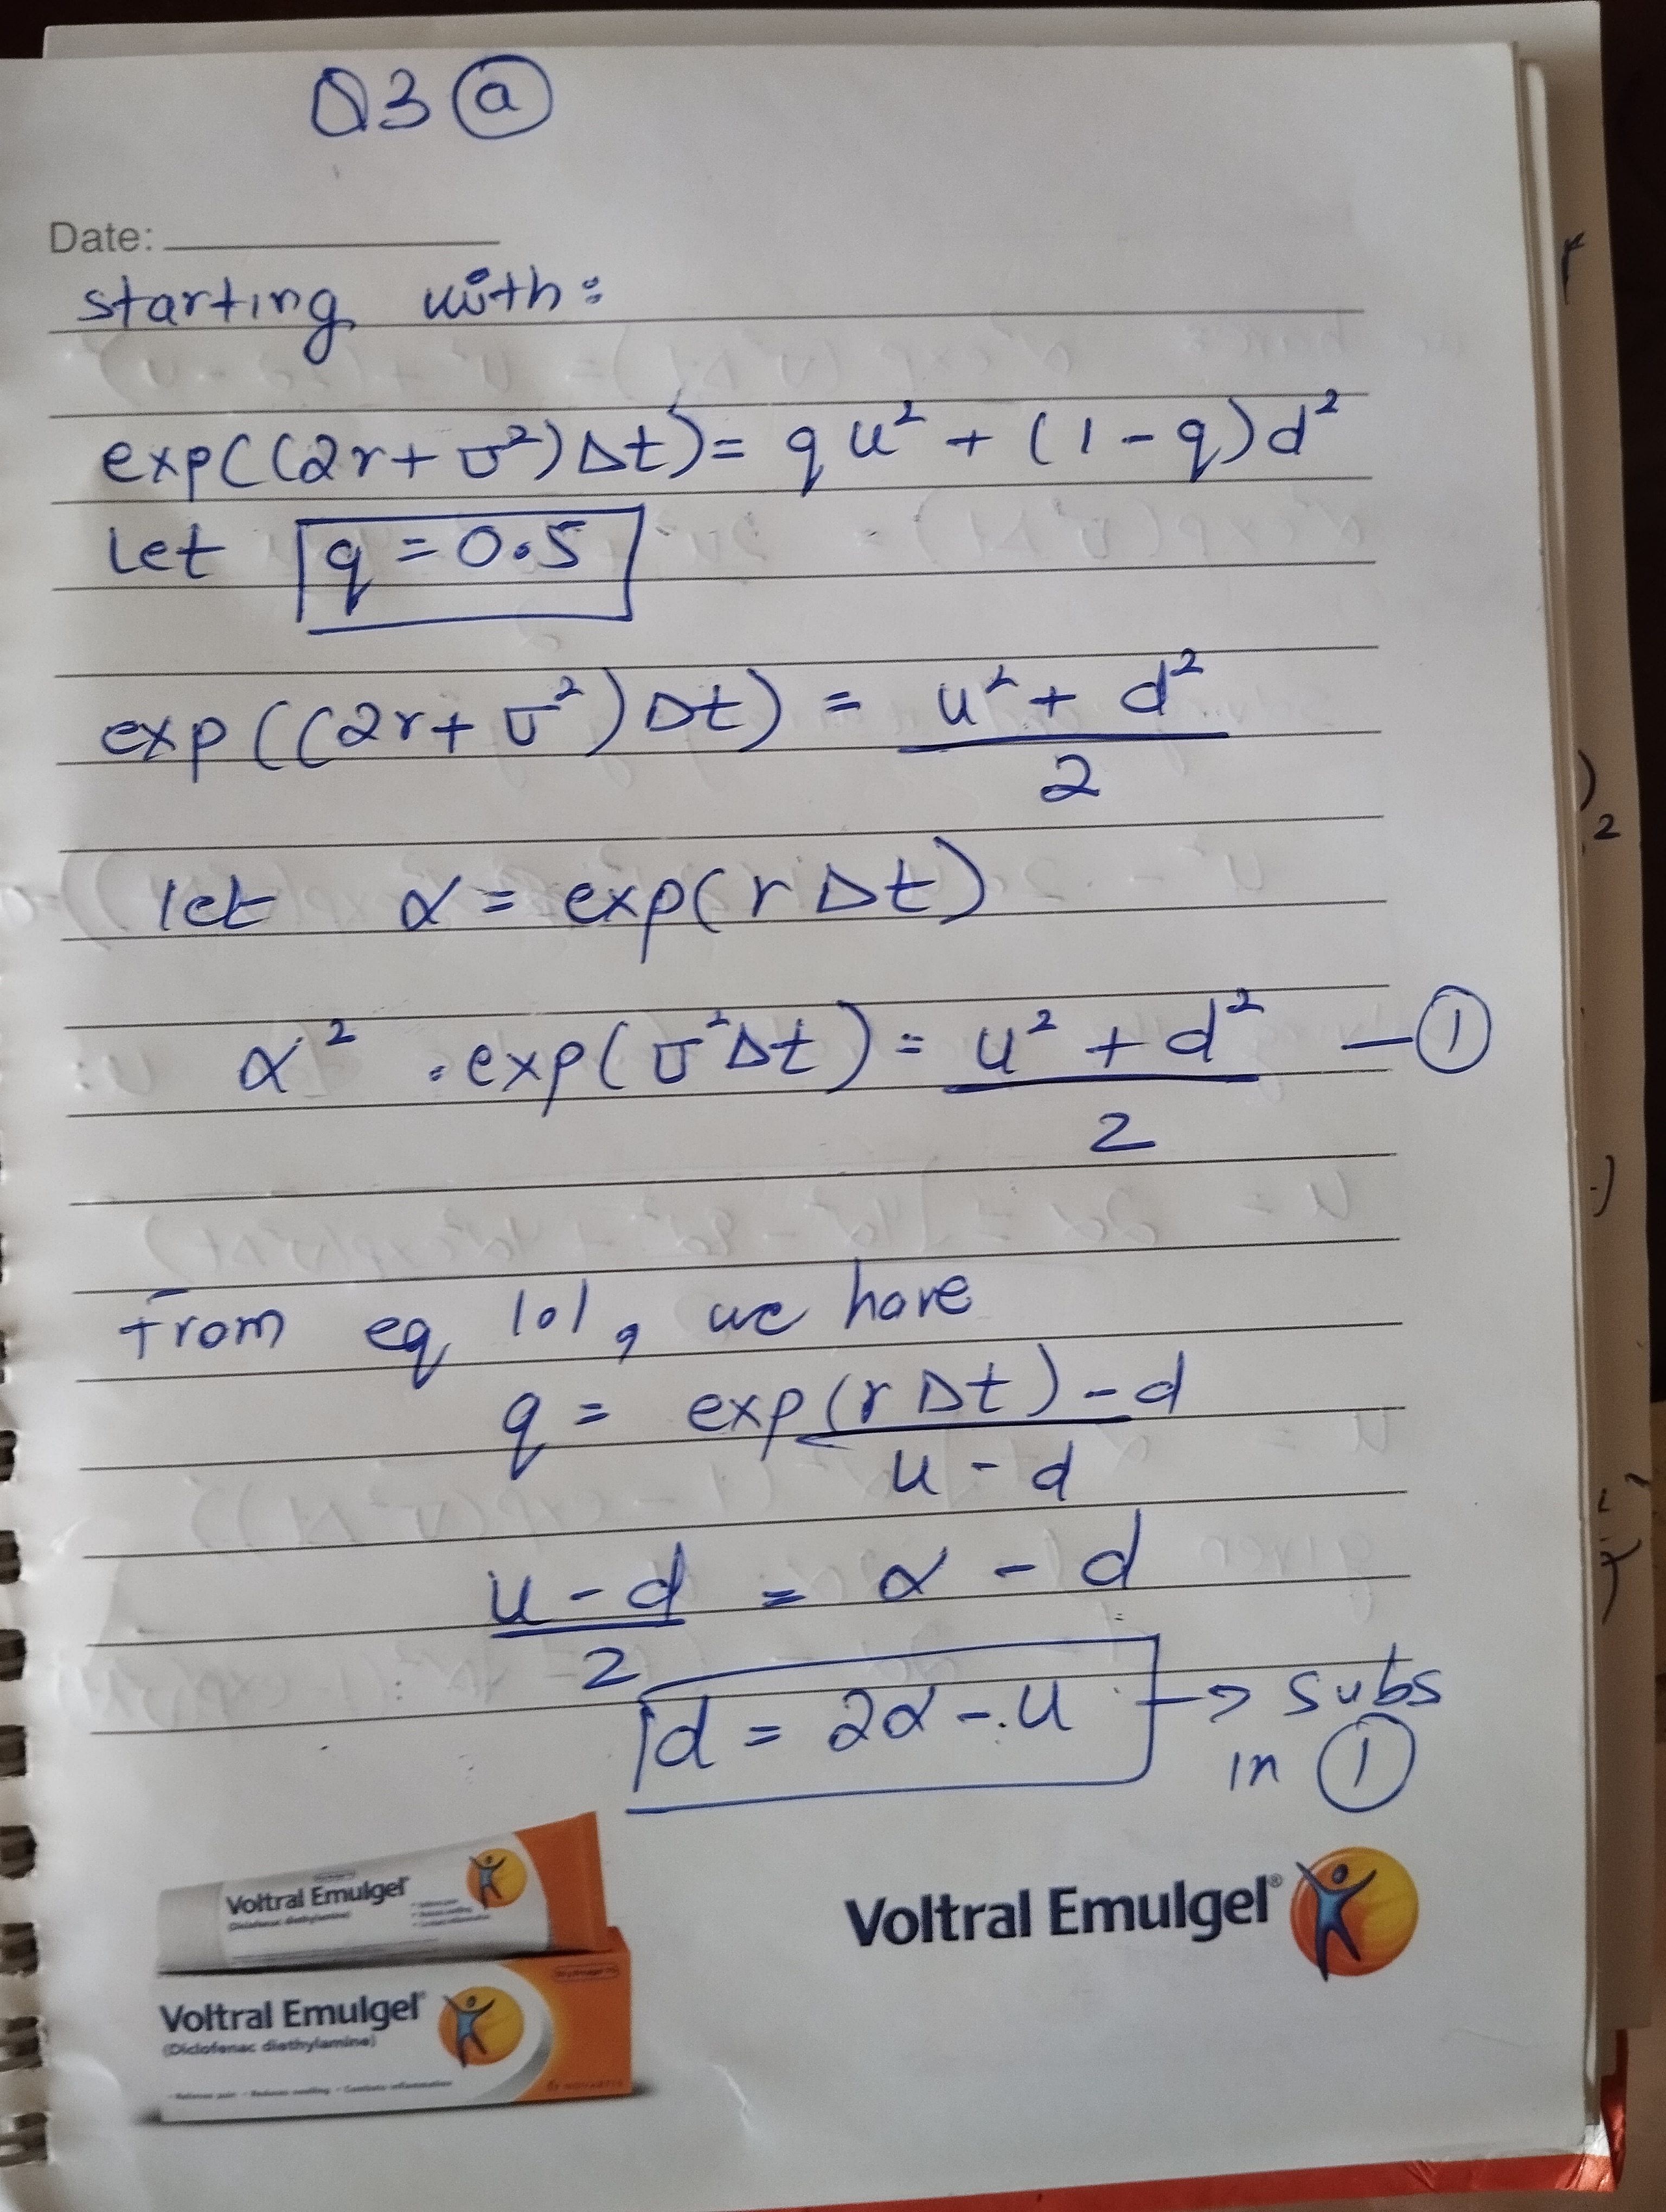 Q3 (a)
Date:
starting with:
exp((2r+σ²)Δt) = qu² + (1-q)d²
Let q = 0.5
exp((2r+σ²)Δt) = u² + d²
2
let α = exp(rΔt)
α² . exp(σ²Δt) = u² + d² — (1)
2
From eq 101, we have
q = exp(rΔt) - d
u - d
u - d = α - d
2
d = 2α - u → subs
in (1)
Voltral Emulgel
Voltral Emulgel®
Voltral Emulgel
(Diclofenac diethylamine)
NOVARTIS